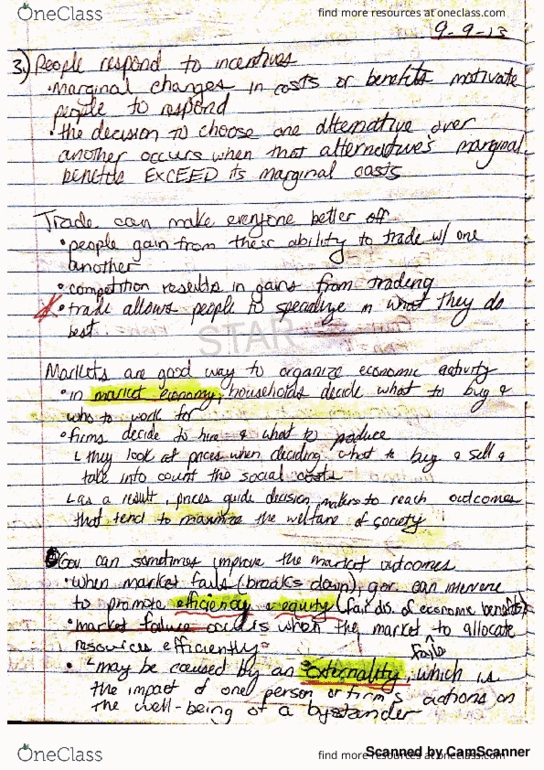 OneClass
find more resources at oneclass.com
9-9-13
3.) People respond to incentives
• marginal changes in costs or benefits motivate
people to respond
• the decision to choose one alternative over
another occurs when that alternative's marginal
benefits EXCEED its marginal costs
Trade can make everyone better off
• people gain from their ability to trade w/ one
another
• competition results in gains from trading
• trade allows people to specialize in what they do
best.
STAR
Markets are good way to organize economic activity
• in market economy, households decide what to buy &
who to work for
• firms decide to hire & what to produce
↳ they look at prices when deciding what to buy & sell &
take into count the social costs
↳ as a result, prices guide decision makers to reach outcomes
that tend to maximize the welfare of society
Gov can sometimes improve the market outcomes
• when market fails (breaks down), gov. can intervene
to promote efficiency & equity (fair dis. of economic benefits)
• market failure occurs when the market to allocate
fails
resources efficiently
• ↳ may be caused by an externality, which is
the impact of one person or firm's actions on
the well-being of a bystander
OneClass
find more resources at oneclass.com
Scanned by CamScanner